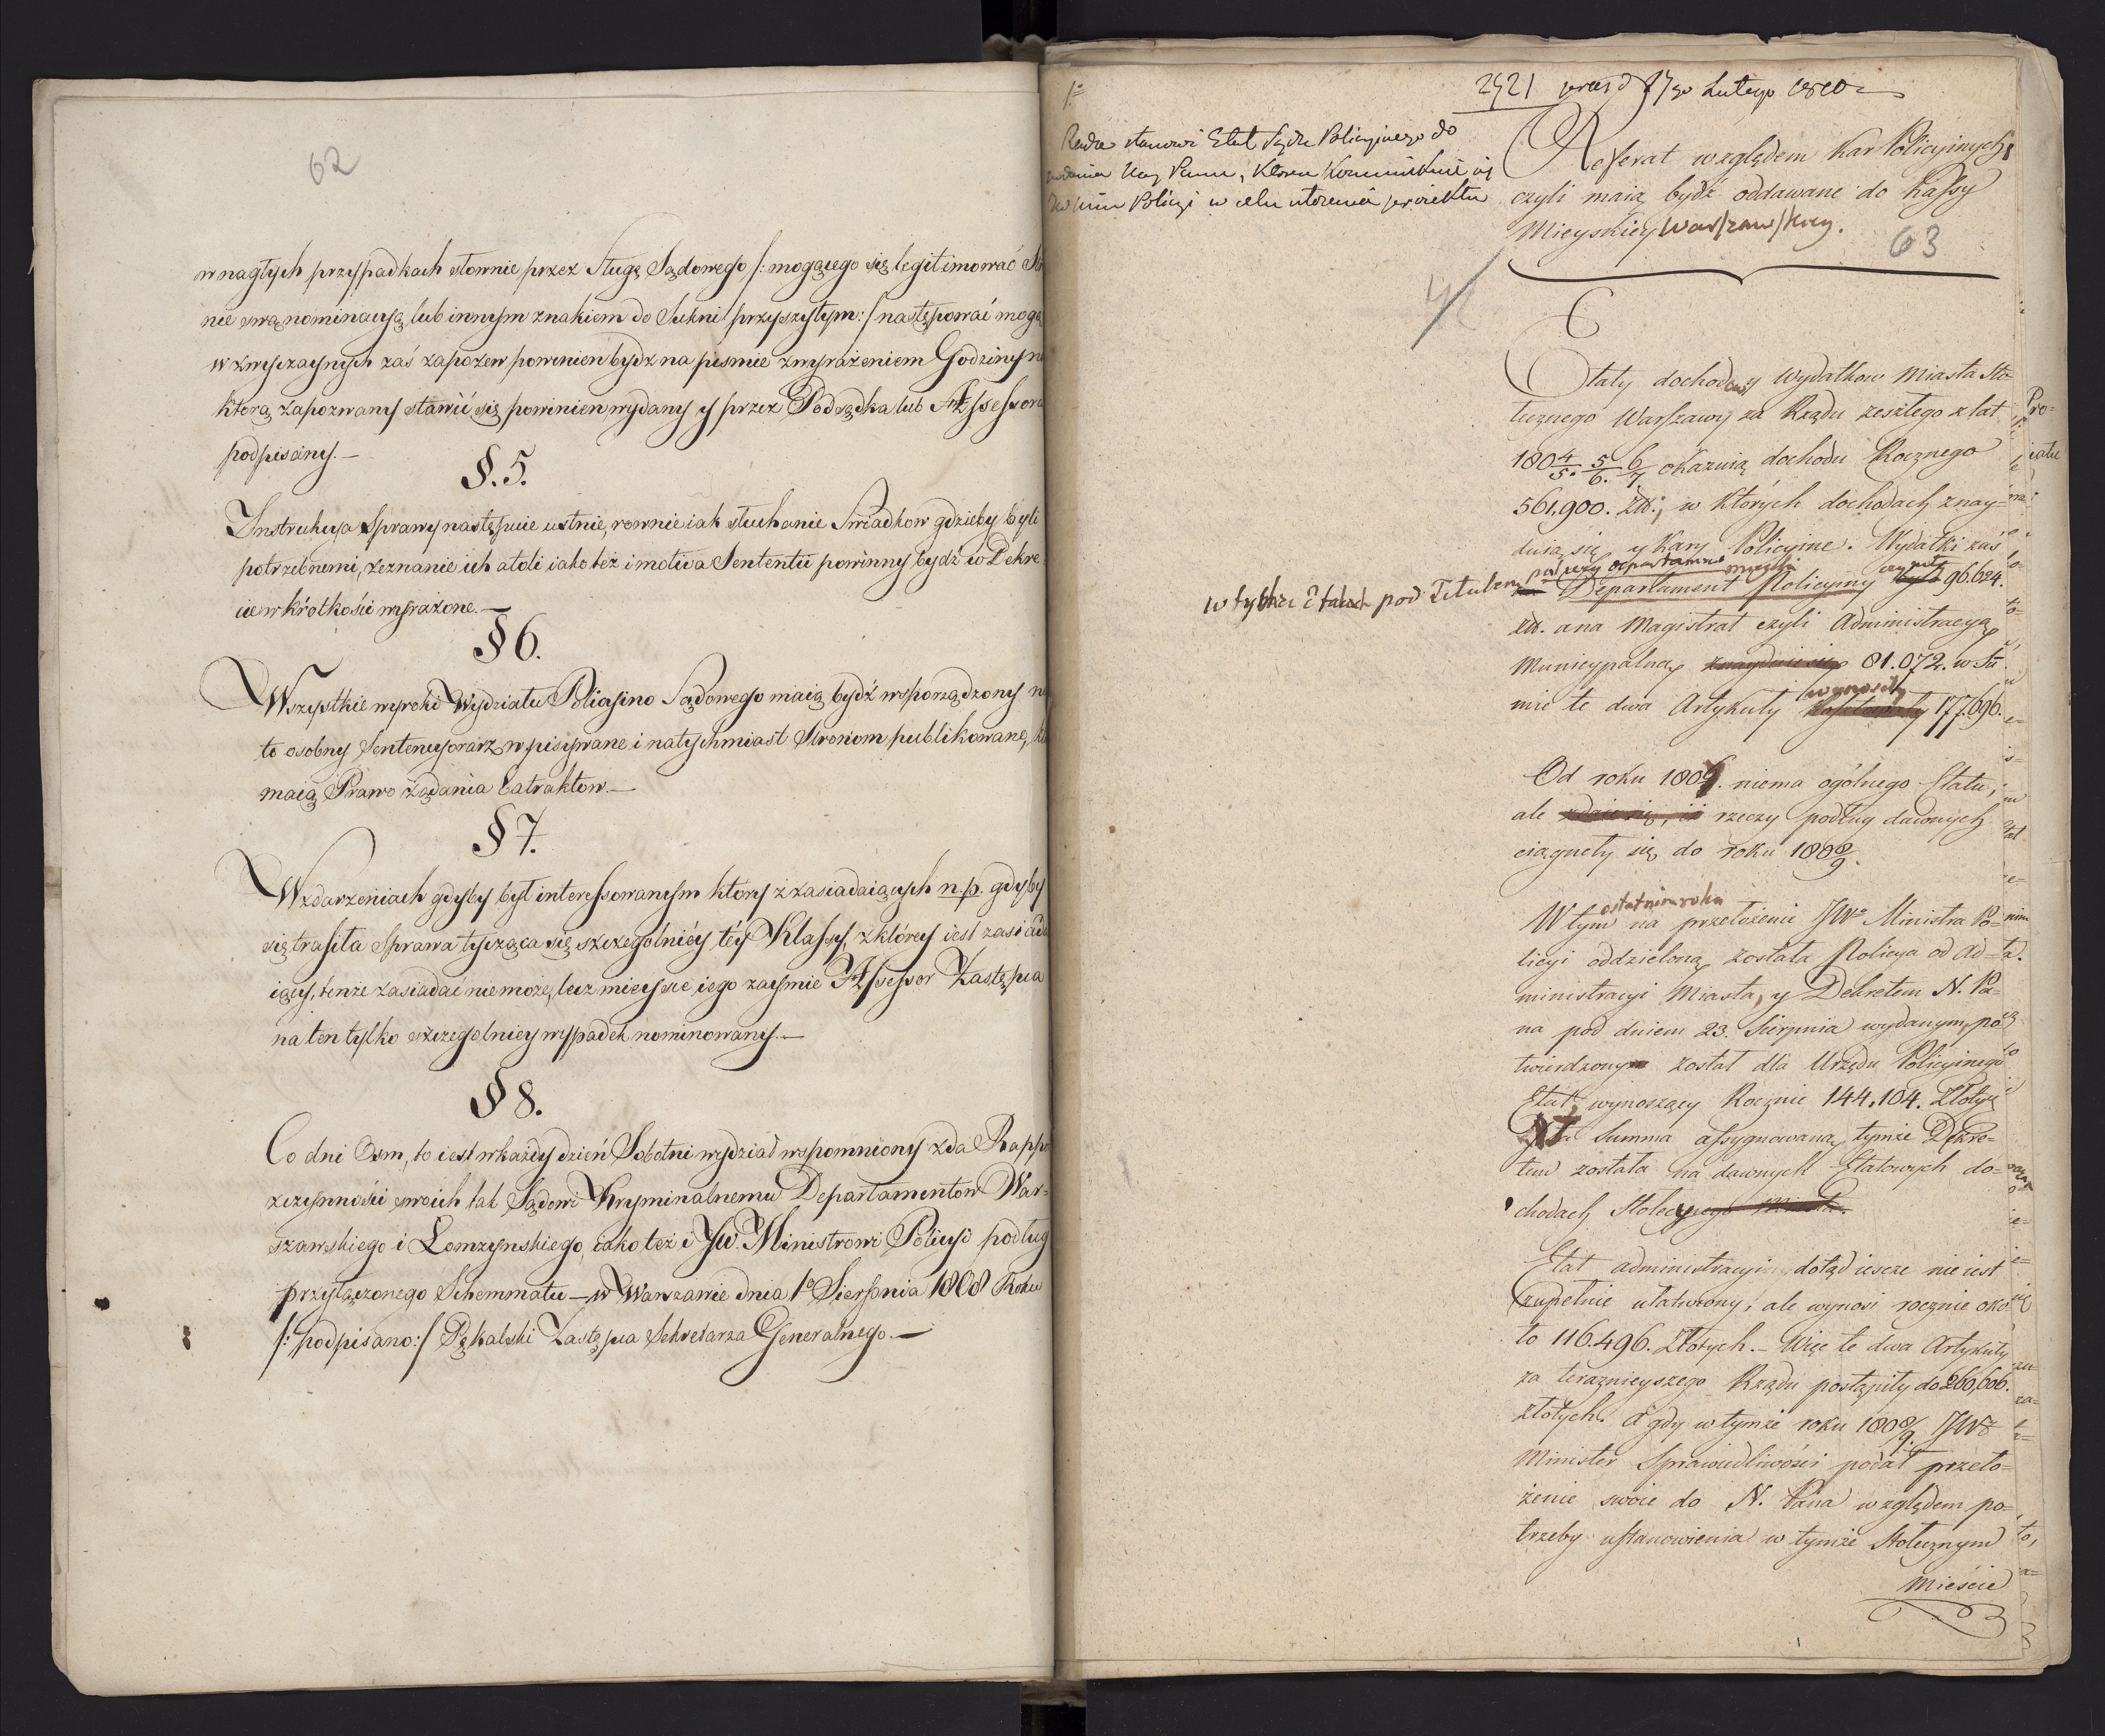 62
w nagłych przypadkach słownie przez Sługę Sądowego /: mogącego się legitimować
nie swą nominacyą lub innym znakiem do Sukni przyszytym :/ następować mogą
w zwyczaynych zaś zapozew powinien bydz na pismie z wyrażeniem Godziny
ktorą zapozwany stawić się powinien wydany y przez Podsędka lub Assessora
podpisany. —
§. 5.
Instrukcya Sprawy nastęmpuie ustnie, rownie iak słuchanie Swiadkow gdzieby byli
potrzebnemi, zeznanie ich atoli iako też i motiva Sententii powinny bydź w Dekre
cie w krótkości wyrażone. —
§ 6.
Wszystkie wyroki Wydziału Policyino Sądowego maią bydź w sporządzony na
to osobny Sentencyonarz wpisywane i natychmiast Stronom publikowane,
maią Prawo żądania Extraktow. —
§ 7.
W zdarzeniach gdyby był interessowanym ktory z zasiadaiących n.p. gdyby
się trafiła Sprawa tycząca się szczegolniéy téy Klassy, z któréy iest zasiada
iący, tenże zasiadać nie może, lecz mieysce iego zaymie Assessor Zastępca
na ten tylko szczegolniey wypadek nominowany. —
§ 8.
Co dni Osm, to iest w każdy dzień Sobotni wydział wspomniony zda Rapp
z czynności swoich tak Sądowi Kryminalnemu Departamentow War=
szawskiego i Łomzynskiego, iako też i JW. Ministrowi Policyi podług
przyłączonego Schemmatu — w Warszawie dnia 1o Sierpnia 1808 Roku
/: podpisano :/ Pękalski Zastępca Sekretarza Generalnego. —
1o
2421 17go Lutego 1810
Rada stanowi Etat Sądu Policyinego do
podania Nay Panu,
Min Policyi w celu ułożenia proiektu
Referat względem Kar Policyinych,
czyli maią bydź oddawane do Kassy
Mieyskiey Warszawskiey.
63
Etaty dochodow y Wydatkow Miasta Sto-
łecznego Warszawy za Rządu zeszłego z lat
180 4/5. 5/6. 6/7. okazuią dochodu Rocznego
561,900. Złł.; w których dochodach znay-
duią się y Kary Policyine. Wydatki zaś
w tychże Etatach pod Tytułem
Departament Policyiny czyniły było 96.624.
Złł. a na Magistrat czyli Administracyą
Municypalną znayduie się 81.072. w Su-
mie te dwa Artykuły wynosiły 177.696.
Od roku 1807. niema ogólnego Etatu,
ale zdaie się, iż rzeczy podług dawnych
ciągneły się do roku 1808/9.
W tym ostatnim roku na przełożenie JWo Ministra Po-
licyi oddzieloną została Policya od Ad-
ministracyi Miasta, y Dekretem N. Pa-
na pod dniem 23. Sierpnia wydanym, po-
twierdzonym został dla Urzędu Policyinego
Etat, wynoszący Rocznie 144,104. Złotych
Ta Summa assygnowaną tymże Dekre-
tem została na dawnych Etatowych do-
chodach Stołecznego Miasta.
Etat administracyi dotąd ieszcze nie iest
zupełnie ułatwiony, ale wynosi rocznie oko-
ło 116.496. Złotych. – Więc te dwa Artykuły
za teraznieyszego Rządu postąpiły do 260,606.
złotych. A gdy w tymże roku 1808/9. JW
Minister Sprawiedliwości podał przeło-
żenie swoie do N. Pana względem po-
trzeby ustanowienia w tymże Stołecznym
Mieście